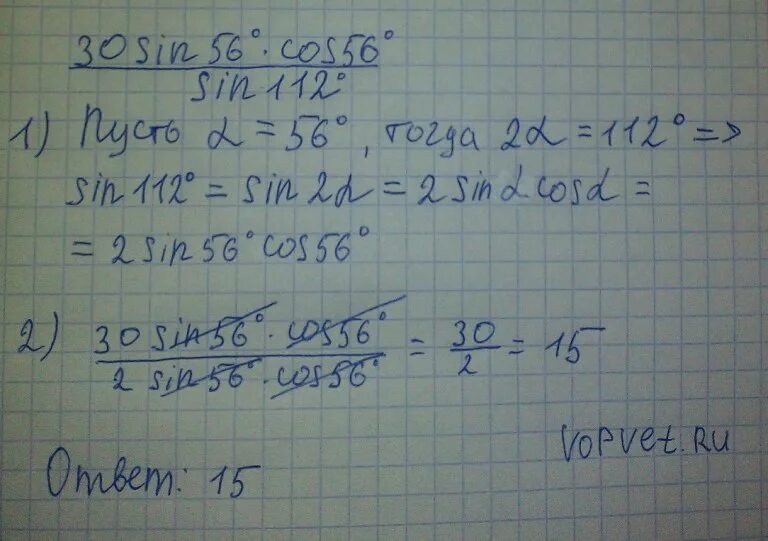 30 sin 56° · cos 56°
sin 112°
1) Пусть α = 56°, тогда 2α = 112° =>
sin 112° = sin 2α = 2 sin α cos α =
= 2 sin 56° cos 56°
2) 30 sin 56° · cos 56° / 2 sin 56° · cos 56° = 30/2 = 15
vopvet.ru
Ответ: 15